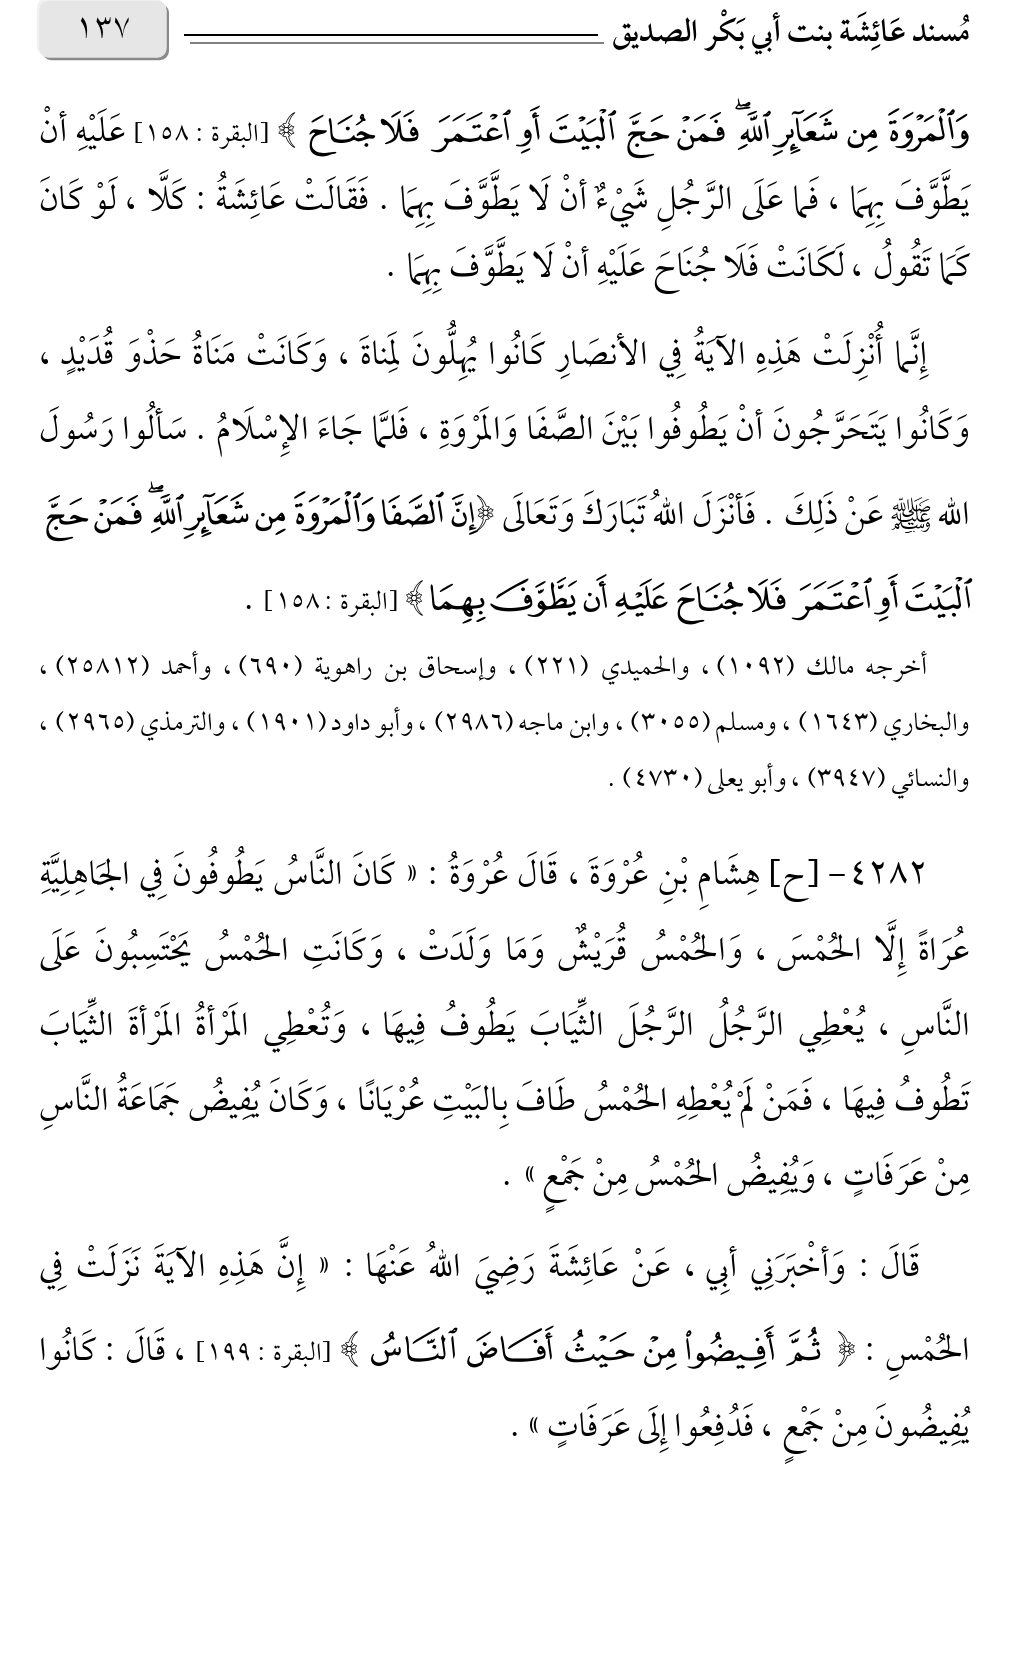 مُسند عَائِشَة بنت أبي بَكْر الصديق ١٣٧
وَٱلْمَرْوَةَ مِن شَعَآئِرِ ٱللَّهِ ۖ فَمَنْ حَجَّ ٱلْبَيْتَ أَوِ ٱعْتَمَرَ فَلَا جُنَاحَ ﴾ [البقرة : ١٥٨] عَلَيْهِ أنْ
يَطَّوَّفَ بِهِمَا ، فَما عَلَى الرَّجُلِ شَيْءٌ أنْ لَا يَطَّوَّفَ بِهِمَا . فَقَالَتْ عَائِشَةُ : كَلَّا ، لَوْ كَانَ
كَمَا تَقُولُ ، لَكَانَتْ فَلَا جُنَاحَ عَلَيْهِ أنْ لَا يَطَّوَّفَ بِهِمَا .
إِنَّما أُنْزِلَتْ هَذِهِ الآيَةُ فِي الأنصَارِ كَانُوا يُهِلُّونَ لِمَناةَ ، وَكَانَتْ مَنَاةُ حَذْوَ قُدَيْدٍ ،
وَكَانُوا يَتَحَرَّجُونَ أنْ يَطُوفُوا بَيْنَ الصَّفَا وَالمَرْوَةِ ، فَلمَّا جَاءَ الإِسْلَامُ . سَألُوا رَسُولَ
الله ﷺ عَنْ ذَلِكَ . فَأنْزَلَ اللهُ تَبَارَكَ وَتَعَالَى ﴿إِنَّ ٱلصَّفَا وَٱلْمَرْوَةَ مِن شَعَآئِرِ ٱللَّهِ ۖ فَمَنْ حَجَّ
ٱلْبَيْتَ أَوِ ٱعْتَمَرَ فَلَا جُنَاحَ عَلَيْهِ أَن يَطَّوَّفَ بِهِمَا﴾ [البقرة : ١٥٨] .
أخرجه مالك (١٠٩٢) ، والحميدي (٢٢١) ، وإسحاق بن راهوية (٦٩٠) ، وأحمد (٢٥٨١٢) ،
والبخاري (١٦٤٣) ، ومسلم (٣٠٥٥) ، وابن ماجه (٢٩٨٦) ، وأبو داود (١٩٠١) ، والترمذي (٢٩٦٥) ،
والنسائي (٣٩٤٧) ، وأبو يعلى (٤٧٣٠) .
٤٢٨٢- [ح] هِشَامِ بْنِ عُرْوَةَ ، قَالَ عُرْوَةُ : « كَانَ النَّاسُ يَطُوفُونَ فِي الجَاهِلِيَّةِ
عُرَاةً إِلَّا الحُمْسَ ، وَالحُمْسُ قُرَيْشٌ وَمَا وَلَدَتْ ، وَكَانَتِ الحُمْسُ يَحْتَسِبُونَ عَلَى
النَّاسِ ، يُعْطِي الرَّجُلُ الرَّجُلَ الثِّيَابَ يَطُوفُ فِيهَا ، وَتُعْطِي المَرْأةُ المَرْأةَ الثِّيَابَ
تَطُوفُ فِيهَا ، فَمَنْ لَمْ يُعْطِهِ الحُمْسُ طَافَ بِالبَيْتِ عُرْيَانًا ، وَكَانَ يُفِيضُ جَمَاعَةُ النَّاسِ
مِنْ عَرَفَاتٍ ، وَيُفِيضُ الحُمْسُ مِنْ جَمْعٍ » .
قَالَ : وَأخْبَرَنِي أبِي ، عَنْ عَائِشَةَ رَضِيَ اللهُ عَنْهَا : « إِنَّ هَذِهِ الآيَةَ نَزَلَتْ فِي
الحُمْسِ : ﴿ ثُمَّ أَفِيضُوا۟ مِنْ حَيْثُ أَفَاضَ ٱلنَّاسُ ﴾ [البقرة : ١٩٩] ، قَالَ : كَانُوا
يُفِيضُونَ مِنْ جَمْعٍ ، فَدُفِعُوا إِلَى عَرَفَاتٍ » .